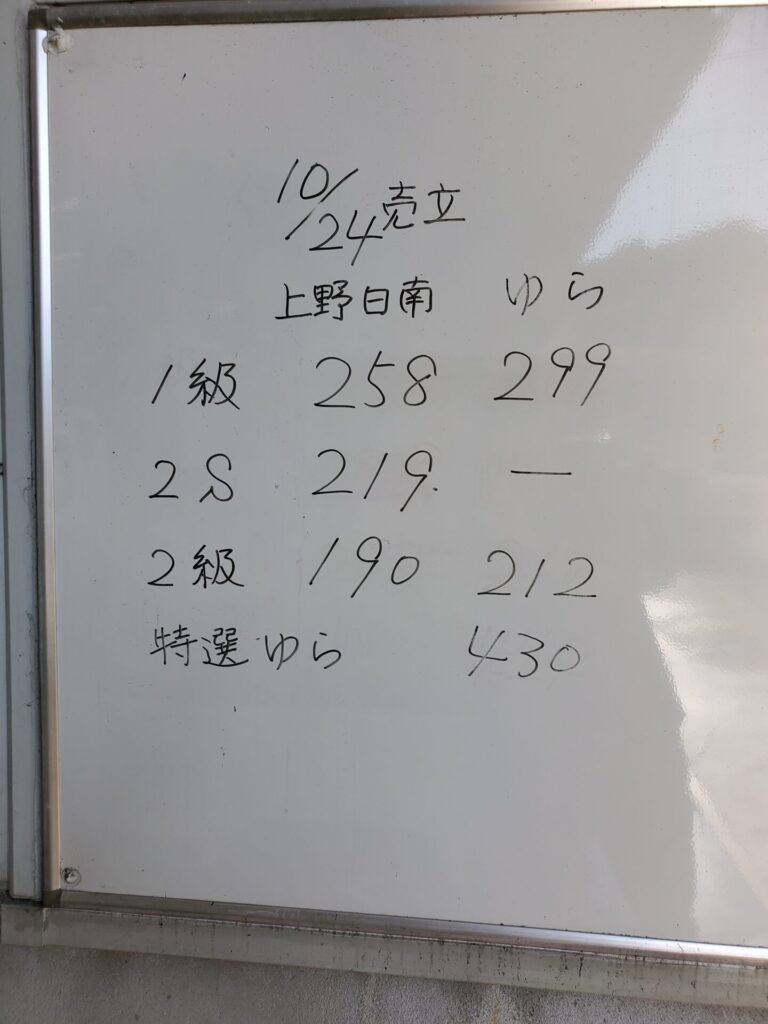 10/24売立
上野日南 ゆら
1級 258 299
2S 219. —
2級 190 212
特選ゆら 430